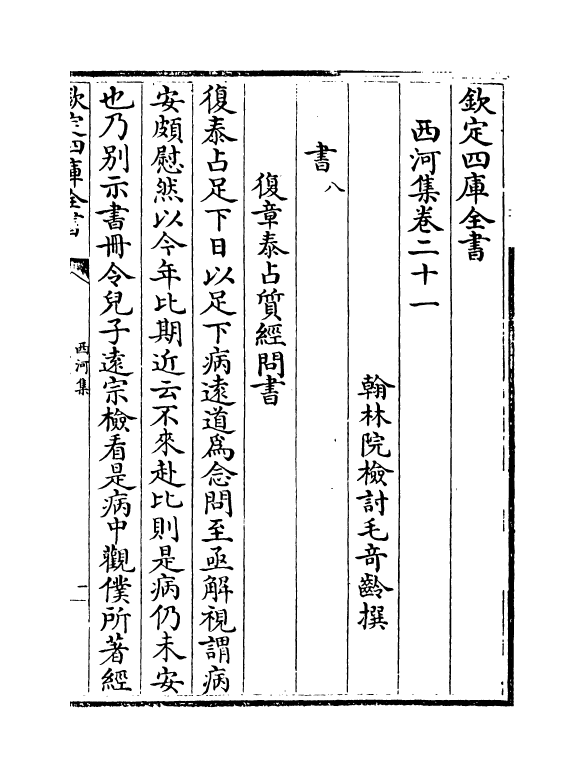 欽定四庫全書
西河集卷二十一
翰林院檢討毛奇齡撰
書八
復章泰占質經問書
復泰占足下日以足下病遠道為念問至亟解視謂病
安頗慰然以今年比期近云不來赴比則是病仍未安
也乃别示書冊令兒子遠宗檢看是病中觀僕所著經
欽定四庫全書
西河集
一